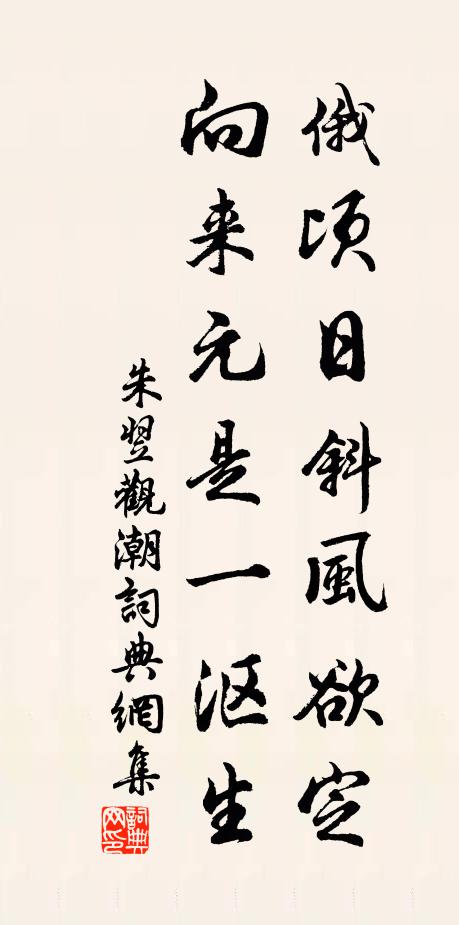 俄頃日斜風欲定
向来元是一漚生
朱翌觀潮詞典網集
詞典網印